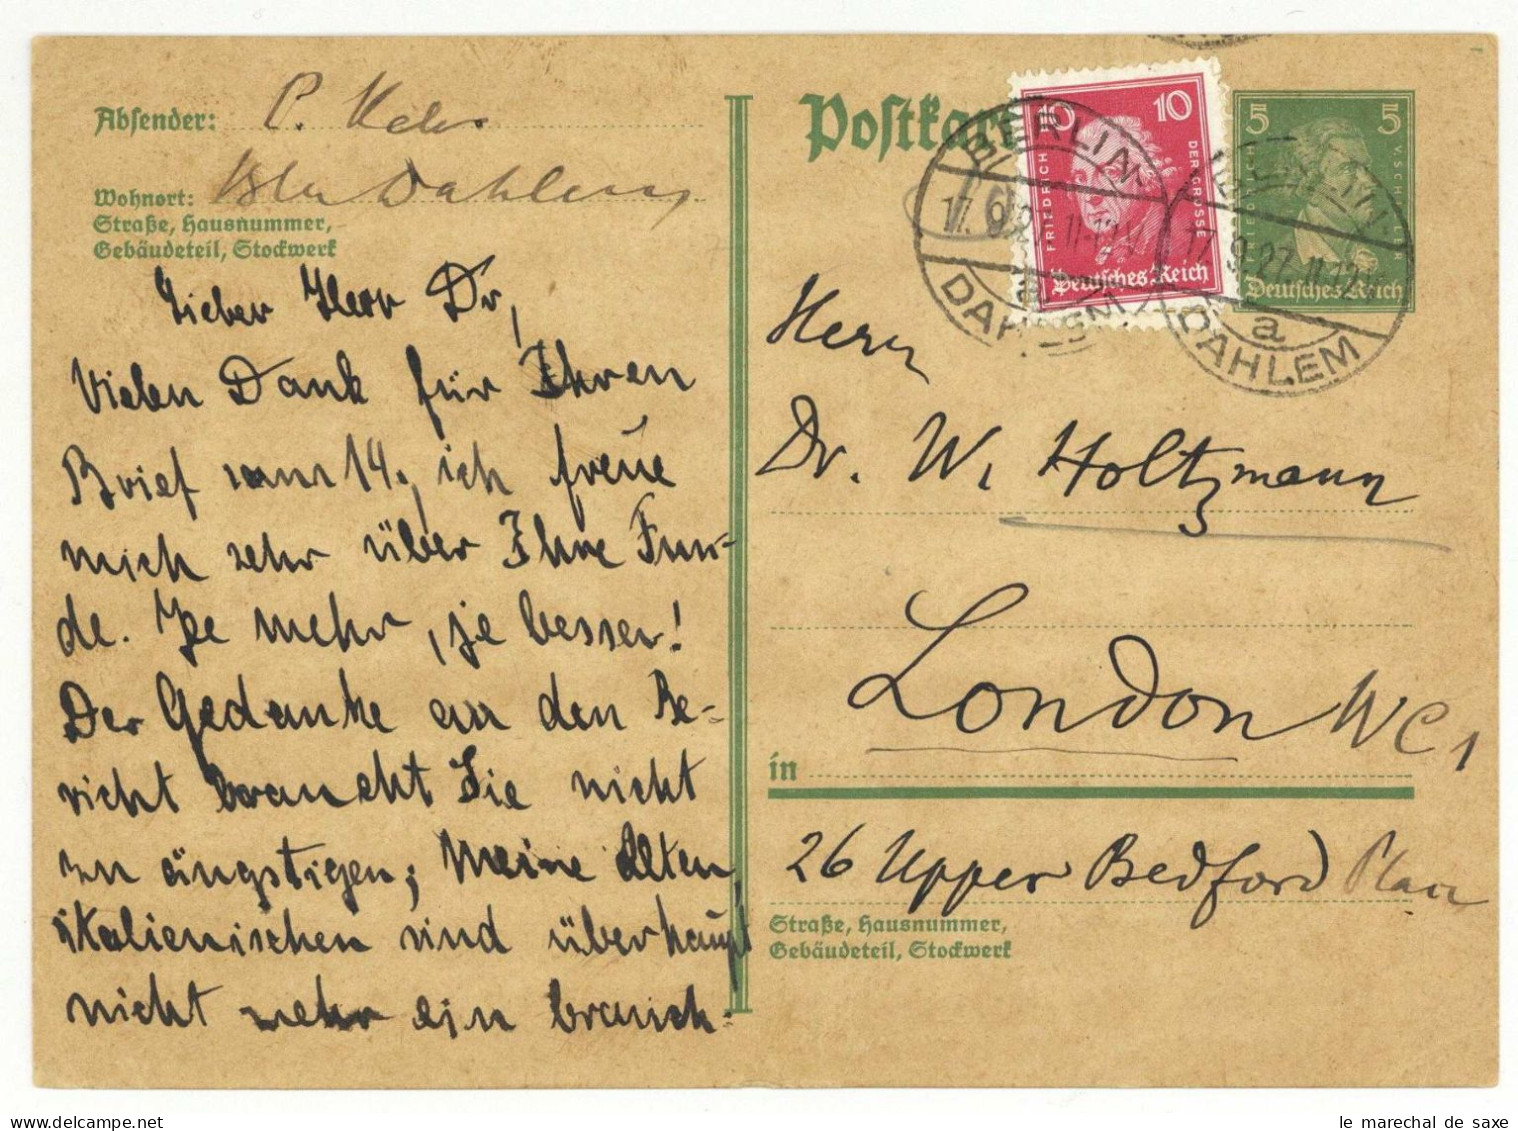 Absender: P. Kehr
Wohnort: Bln Dahlem
Straße, Hausnummer,
Gebäudeteil, Stockwerk
Lieber Herr Dr,
Vielen Dank für Ihren
Brief vom 14., ich freue
mich sehr über Ihre Fun-
de. Je mehr, je besser!
Der Gedanke an den Be-
richt braucht Sie nicht
zu ängstigen; meine alten
italienischen sind überhaupt
nicht mehr ein brauch-
Postkar
10 10
FRIEDRICH
DER GROSSE
Deutsches Reich
5 5
V. SCHILLER
FRIEDRICH
Deutsches Reich
BERLIN
17. 9.27. 11-12
a
DAHLEM
BERLIN
17. 9.27. 11-12
a
DAHLEM
Herrn
Dr. W. Holtzmann
London WC 1
in
26 Upper Bedford Place
Straße, Hausnummer,
Gebäudeteil, Stockwerk
le marechal de saxe